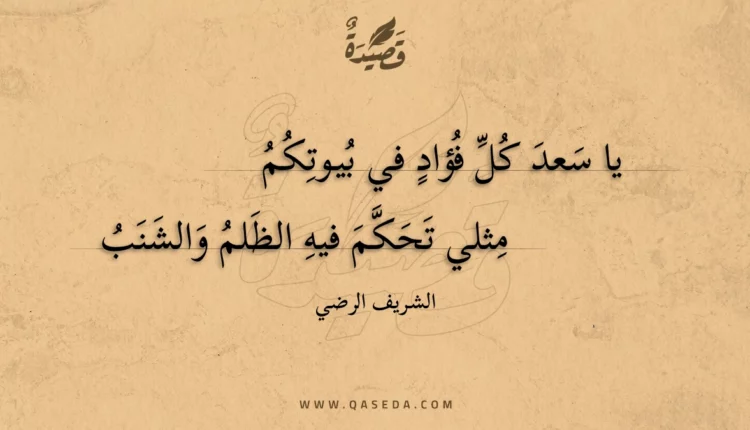 قَصِيدَةٌ
يا سَعدَ كُلِّ فُؤادٍ في بُيوتِكُمُ
مِثلي تَحَكَّمَ فيهِ الظَلمُ وَالشَنَبُ
الشريف الرضي
WWW.QASEDA.COM